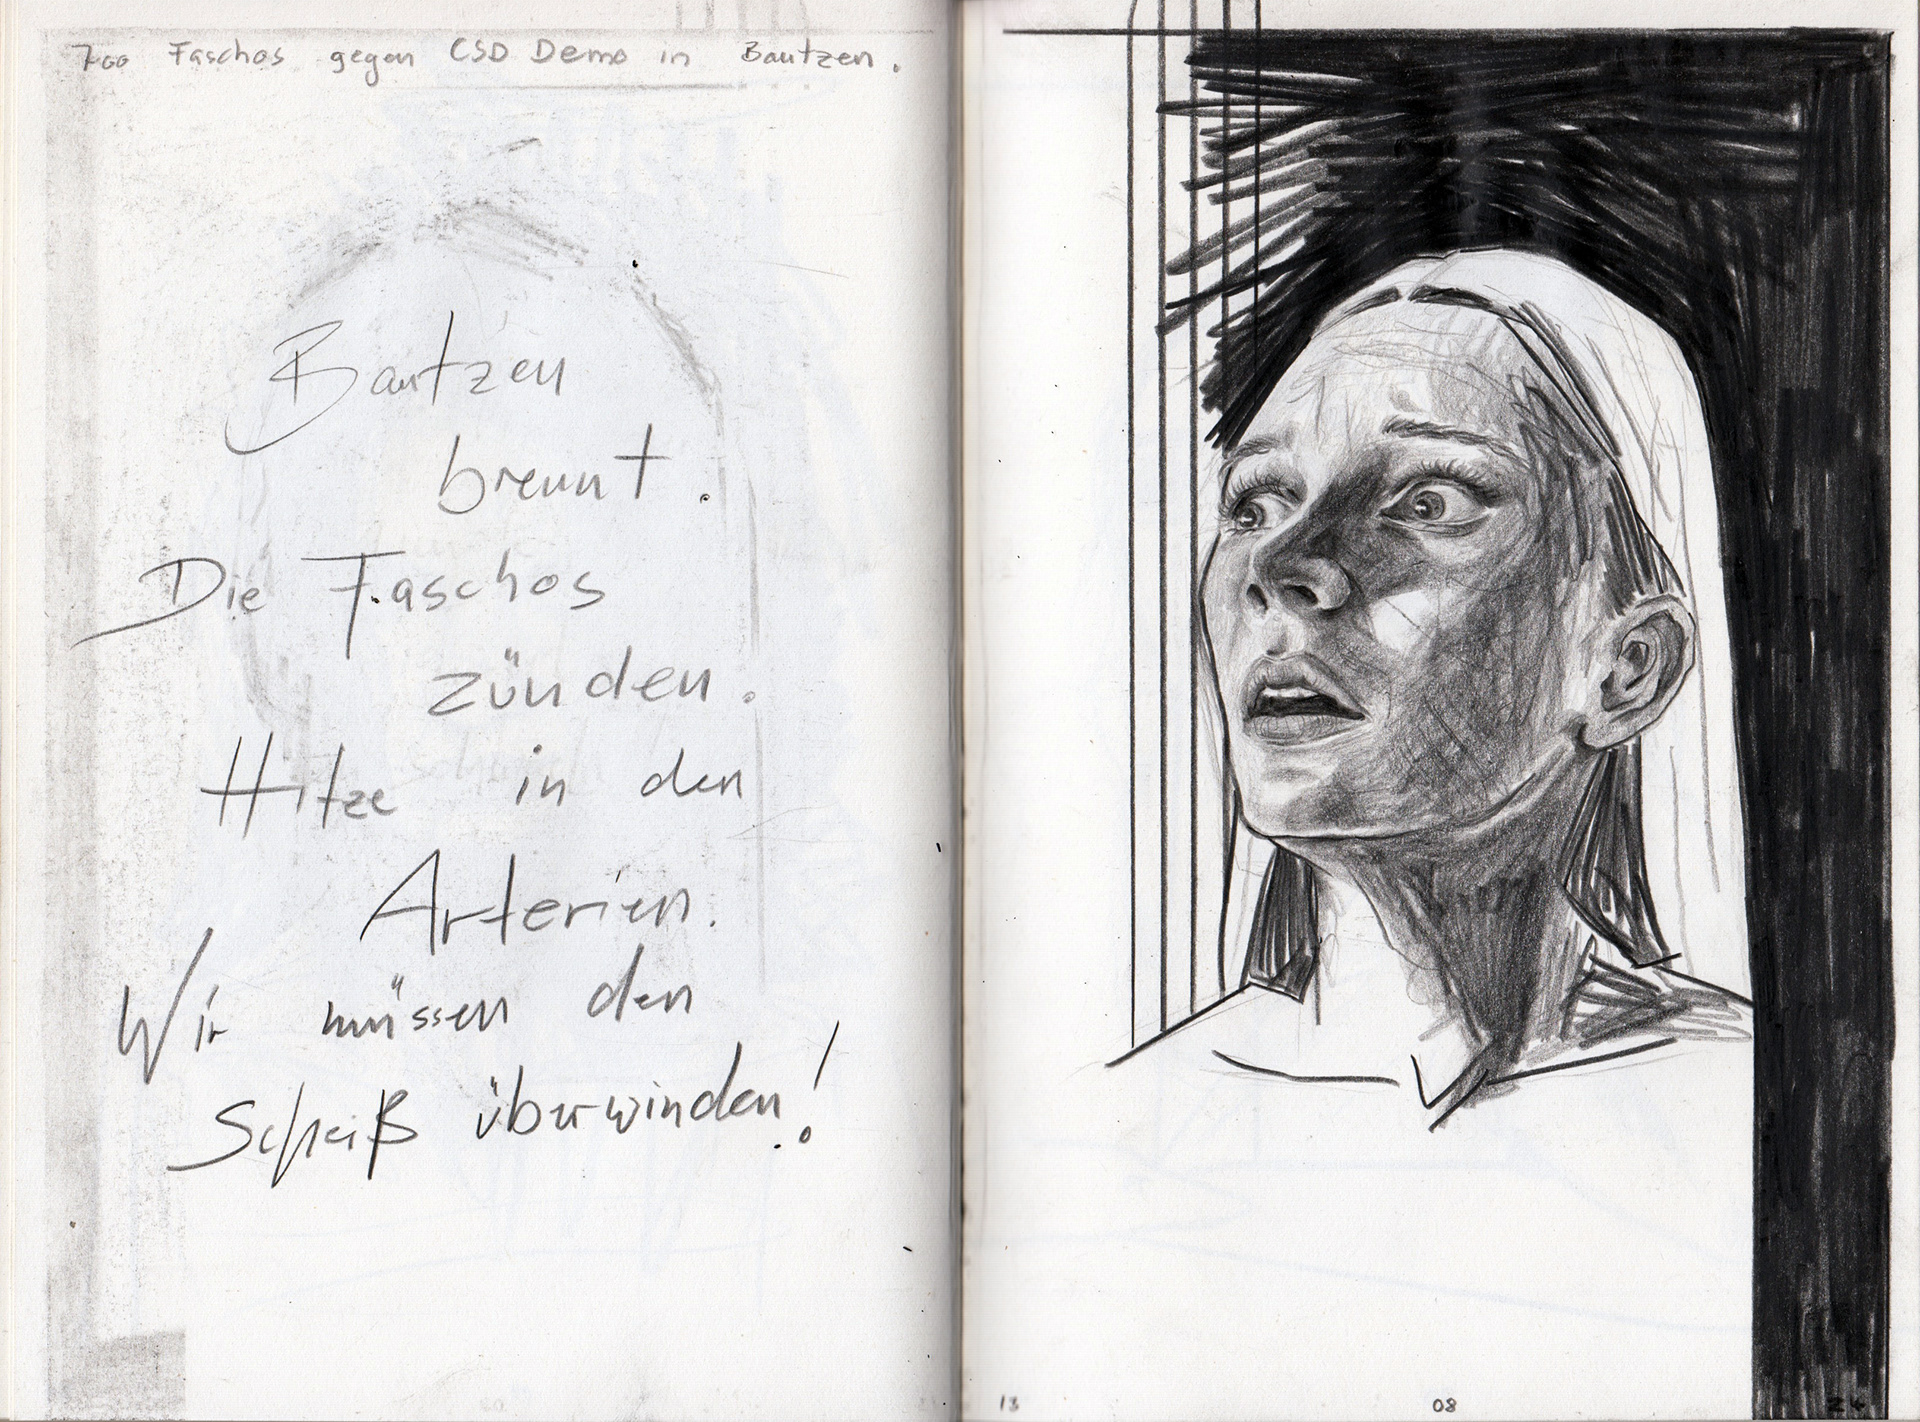 700 Faschos gegen CSD Demo in Bautzen.
Bautzen
brennt.
Die Faschos
zünden.
Hitze in den
Arterien.
Wir müssen den
Scheiß überwinden!
13 08 24